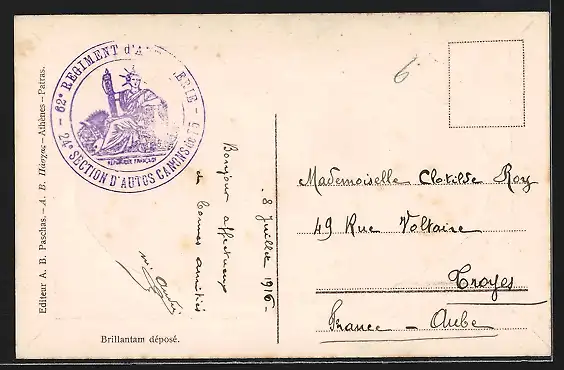 62e REGIMENT d'ARTILLERIE
24e SECTION D'AUTOS CANONS de 75
REPUBLIQUE FRANÇAISE
Editeur A. B. Paschas.—A. B. Πάσχας—Athènes—Patras.
Brillantam déposé.
8 Juillet 1916-
Bonjour affectueux
et bonnes amitiés
6
Mademoiselle Clotilde Roy
49 Rue Voltaire
Troyes
France - Aube